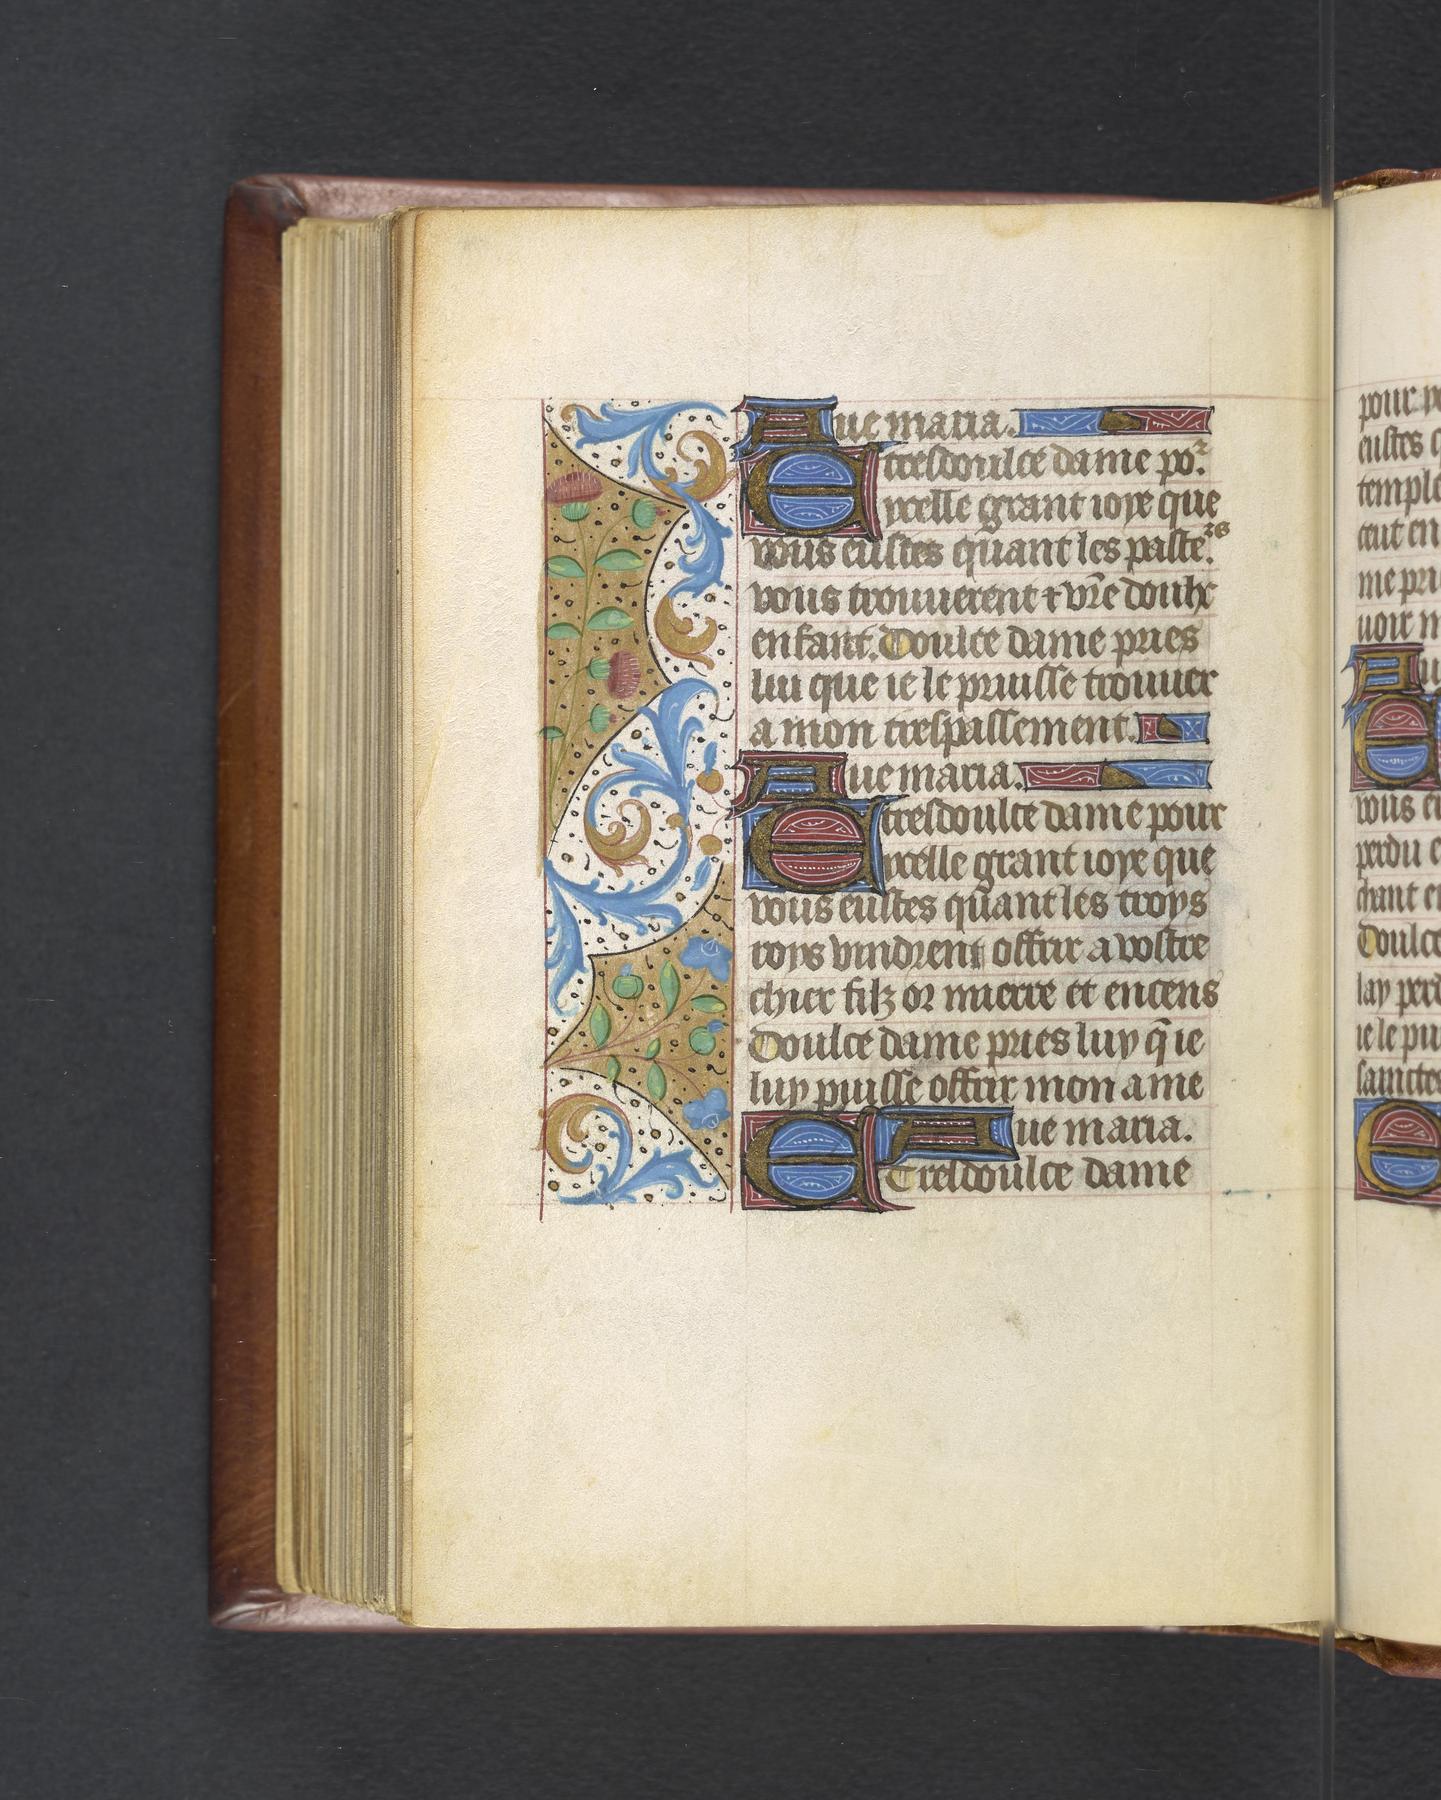 Aue maria.
E tresdoulce dame poᷣ.
ycelle grant ioye que
vous eustes quant les paste.
vous trouuerent ⁊ vr̃e doulx
enfant. Doulce dame pries
luy que ie le pruisse trouuer
a mon trespassement.
Aue maria.
E tresdoulce dame pour
ycelle grant ioye que
vous eustes quant les troys
roys vindrent offrir a vostre
chier filz or mierre et encens
Doulce dame pries luy q̃ ie
luy puisse offrir mon ame
Aue maria.
E Tresdoulce dame
pour
eustes
temple
eut en
me pri
uoir
Au
E
vous
perdu
chant
Doulce
lay perd
ie le pui
sainctes
E